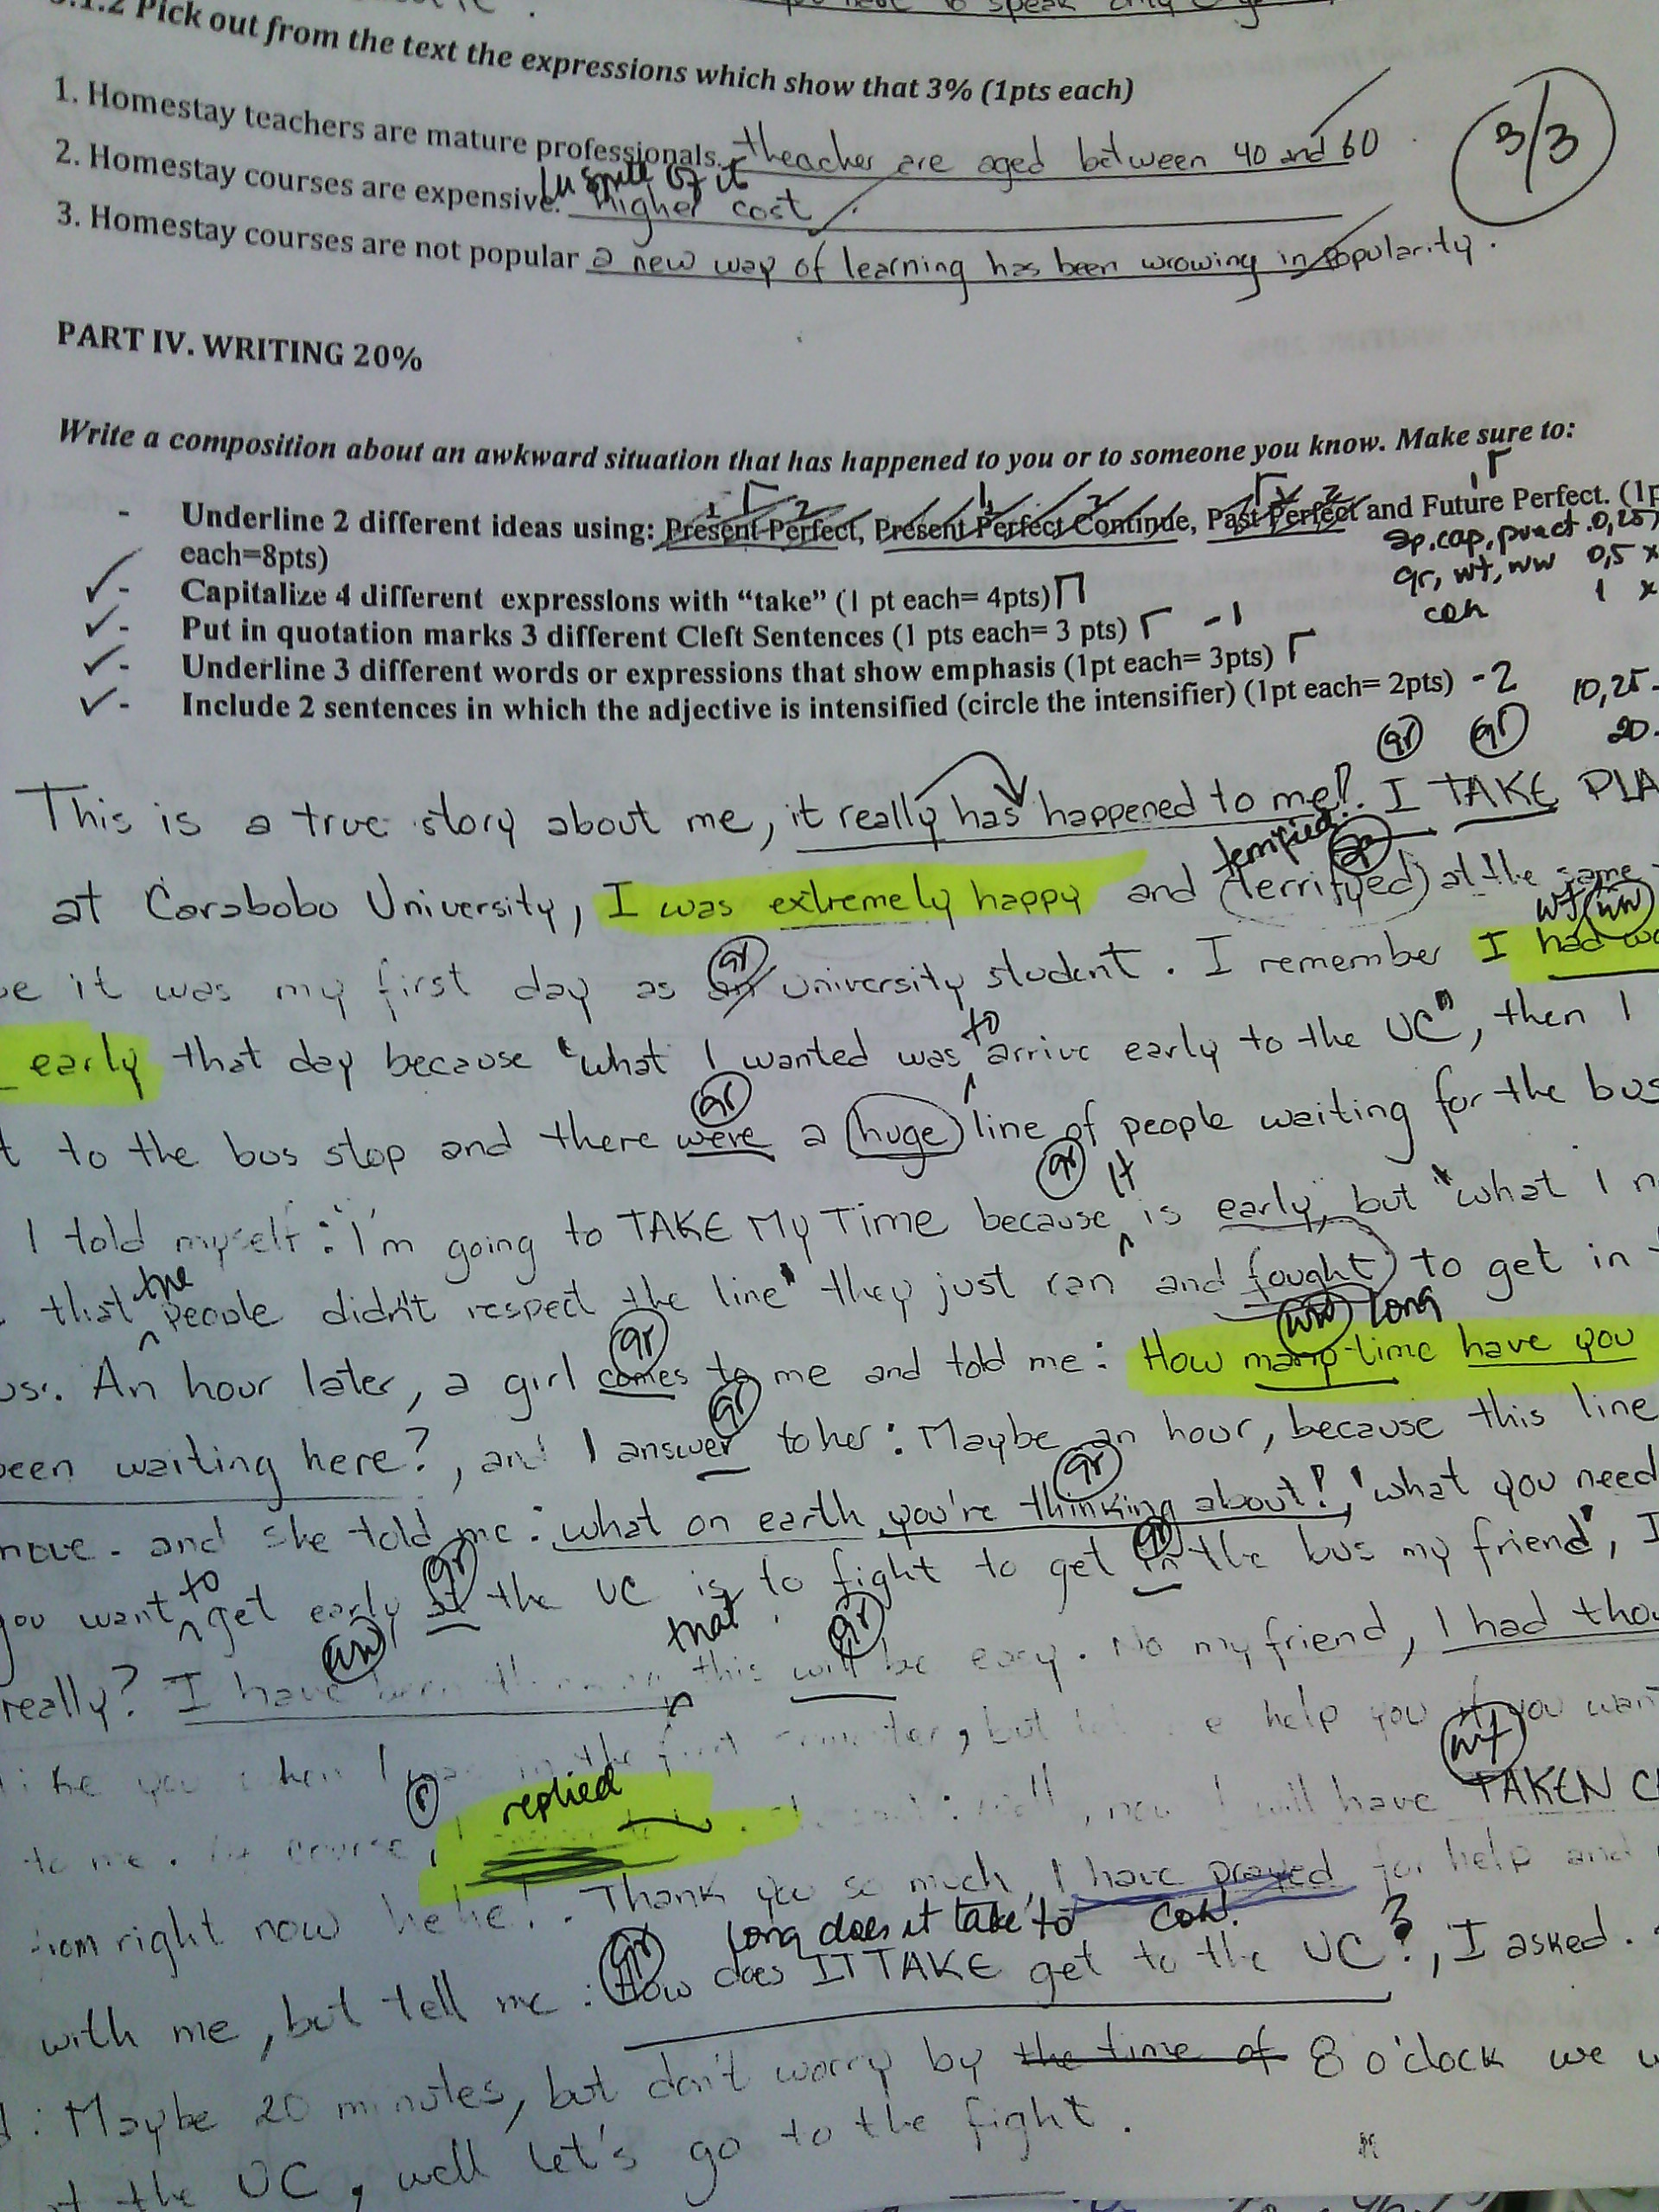 3.1.2 Pick out from the text the expressions which show that 3% (1pts each)
1. Homestay teachers are mature professionals. theacher are aged between 40 and 60
3/3
In spite of it
2. Homestay courses are expensive. Higher cost.
3. Homestay courses are not popular a new way of learning has been wrowing in popularity.
PART IV. WRITING 20%
Write a composition about an awkward situation that has happened to you or to someone you know. Make sure to:
- Underline 2 different ideas using: Present Perfect, Present Perfect Continue, Past Perfect and Future Perfect. (1p
each=8pts)
sp, cap, punct. 0,25
gr, wt, ww 0,5 x
coh 1 x
- Capitalize 4 different expressions with "take" (1 pt each= 4pts)
- Put in quotation marks 3 different Cleft Sentences (1 pts each= 3 pts) -1
- Underline 3 different words or expressions that show emphasis (1pt each= 3pts)
- Include 2 sentences in which the adjective is intensified (circle the intensifier) (1pt each= 2pts) -2
10,25
20
gr gr
This is a true story about me, it really has happened to me!. I TAKE PLA
terrified sp
at Carabobo University, I was extremely happy and (terrifyed) at the same
wt ww
gr
be it was my first day as an university student. I remember I had wo
to
early that day because "what I wanted was arrive early to the UC", then I
gr
t to the bus stop and there were a huge line of people waiting for the bus
gr It
I told myself: I'm going to TAKE My Time because is early, but "what I n
the
that people didn't respect the line" they just ran and fought) to get in
gr ww long
us. An hour later, a girl comes to me and told me: How many time have you
gr
been waiting here?, and I answer to her: Maybe an hour, because this line
gr
move. and she told me: what on earth you're thinking about!, "what you need
to gr gr
you want get early at the UC is to fight to get in the bus my friend", I
ww that gr
really? I have been this will be easy. No my friend, I had thou
like you when I was in the first, but help you if you wan
wt
r replied
to me. Of course, I, now I will have TAKEN C
from right now hehe!. Thank you so much, I have prayed for help and
gr long does it take to coh.
with me, but tell me: How does IT TAKE get to the UC?, I asked.
d: Maybe 20 minutes, but don't worry by the time of 8 o'clock we w
at the UC, well let's go to the fight.